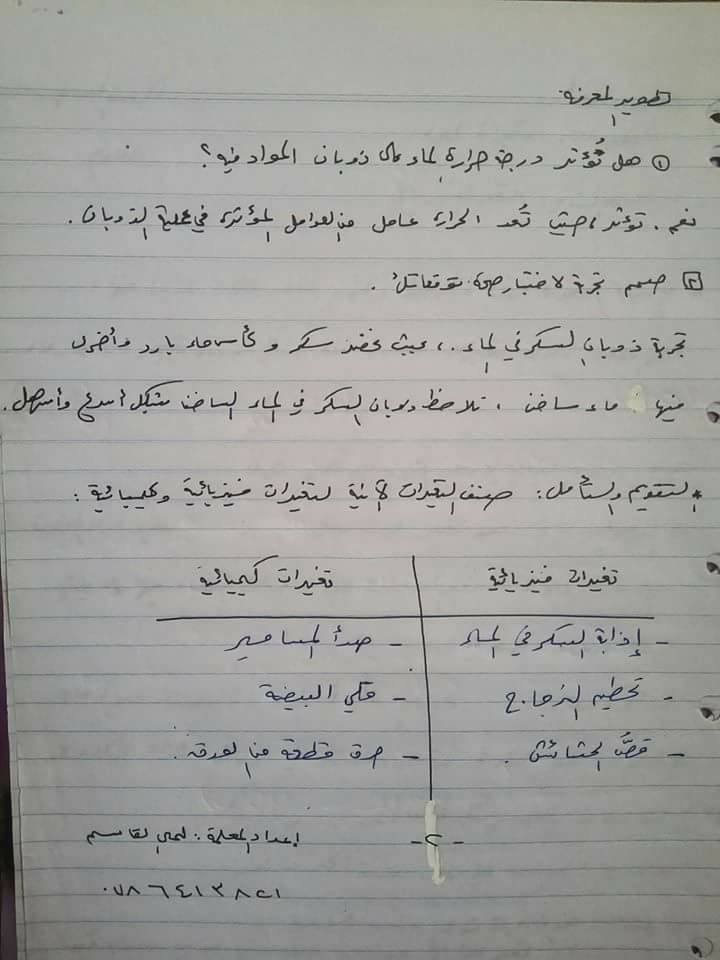 تطوير المعرفة
① هل تُؤثر درجة حرارة الماء على ذوبان المواد فيه؟
نعم. تؤثر، حيث تُعد الحرارة عامل من العوامل المؤثرة في عملية الذوبان.
٢ صمم تجربة لاختبار صحة توقعاتك.
تجربة ذوبان السكر في الماء.، بحيث نحضر سكر و كأس ماء بارد وأخرى
فيها ماء ساخن، نلاحظ ذوبان السكر في الماء الساخن بشكل أسرع وأسهل.
* التقويم والتأمل: صنف التغيرات الآتية لتغيرات فيزيائية وكيميائية:
تغيرات فيزيائية | تغيرات كيميائية
- إذابة السكر في الماء | - صدأ المسامير
- تحطيم الزجاج | - قلي البيضة
- قصُّ الحشائش. | - حرق قطعة من الورق.
- ٢ -
إعداد المعلمة: لمى القاسم
٠٧٨٦٤١٣٨٢١